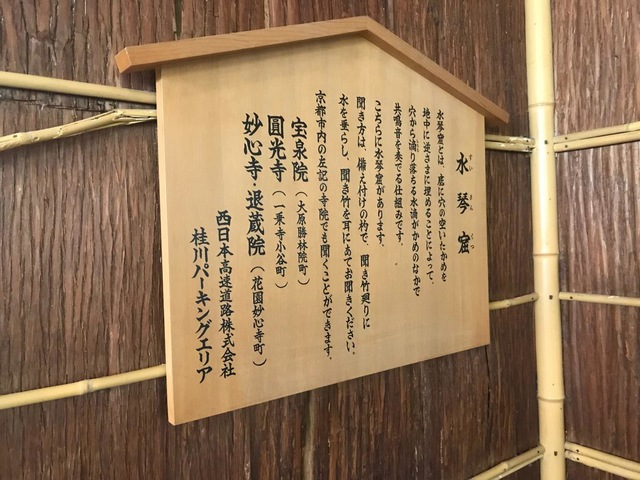 水琴窟
すいきんくつ
水琴窟とは、底に穴の空いたかめを
地中に逆さまに埋めることによって、
穴から滴り落ちる水滴がかめのなかで
共鳴音を奏でる仕組みです。
こちらに水琴窟があります。
聞き方は、備え付けの杓で、聞き竹廻りに
水を垂らし、聞き竹を耳にあてお聞きください。
京都市内の左記の寺院でも聞くことができます。
宝泉院(大原勝林院町)
圓光寺(一乗寺小谷町)
妙心寺・退蔵院(花園妙心寺町)
西日本高速道路株式会社
桂川パーキングエリア